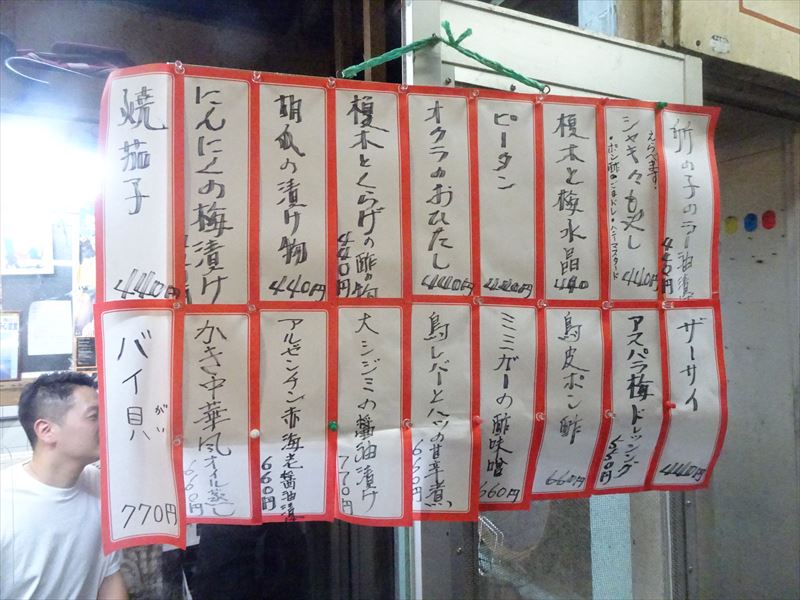 筍の子のラー油漬
440円
えらべます!
シャキ々もやし
・ポン酢・ごまドレ・ハニーマスタード
440円
榎木と梅水晶
440
ピータン
440円
オクラのおひたし
440円
榎木とくらげの酢の物
440円
胡瓜の漬け物
440円
にんにくの梅漬け
焼茄子
440円
ザーサイ
440円
アスパラ梅ドレッシング
550円
鳥皮ポン酢
660円
ミミガーの酢味噌
660円
鳥レバーとハツの甘辛煮
660円
大シジミの醤油漬け
770円
アルゼンチン赤海老醤油漬
660円
かき中華風オイル蒸し
660円
バイ貝
がい
770円